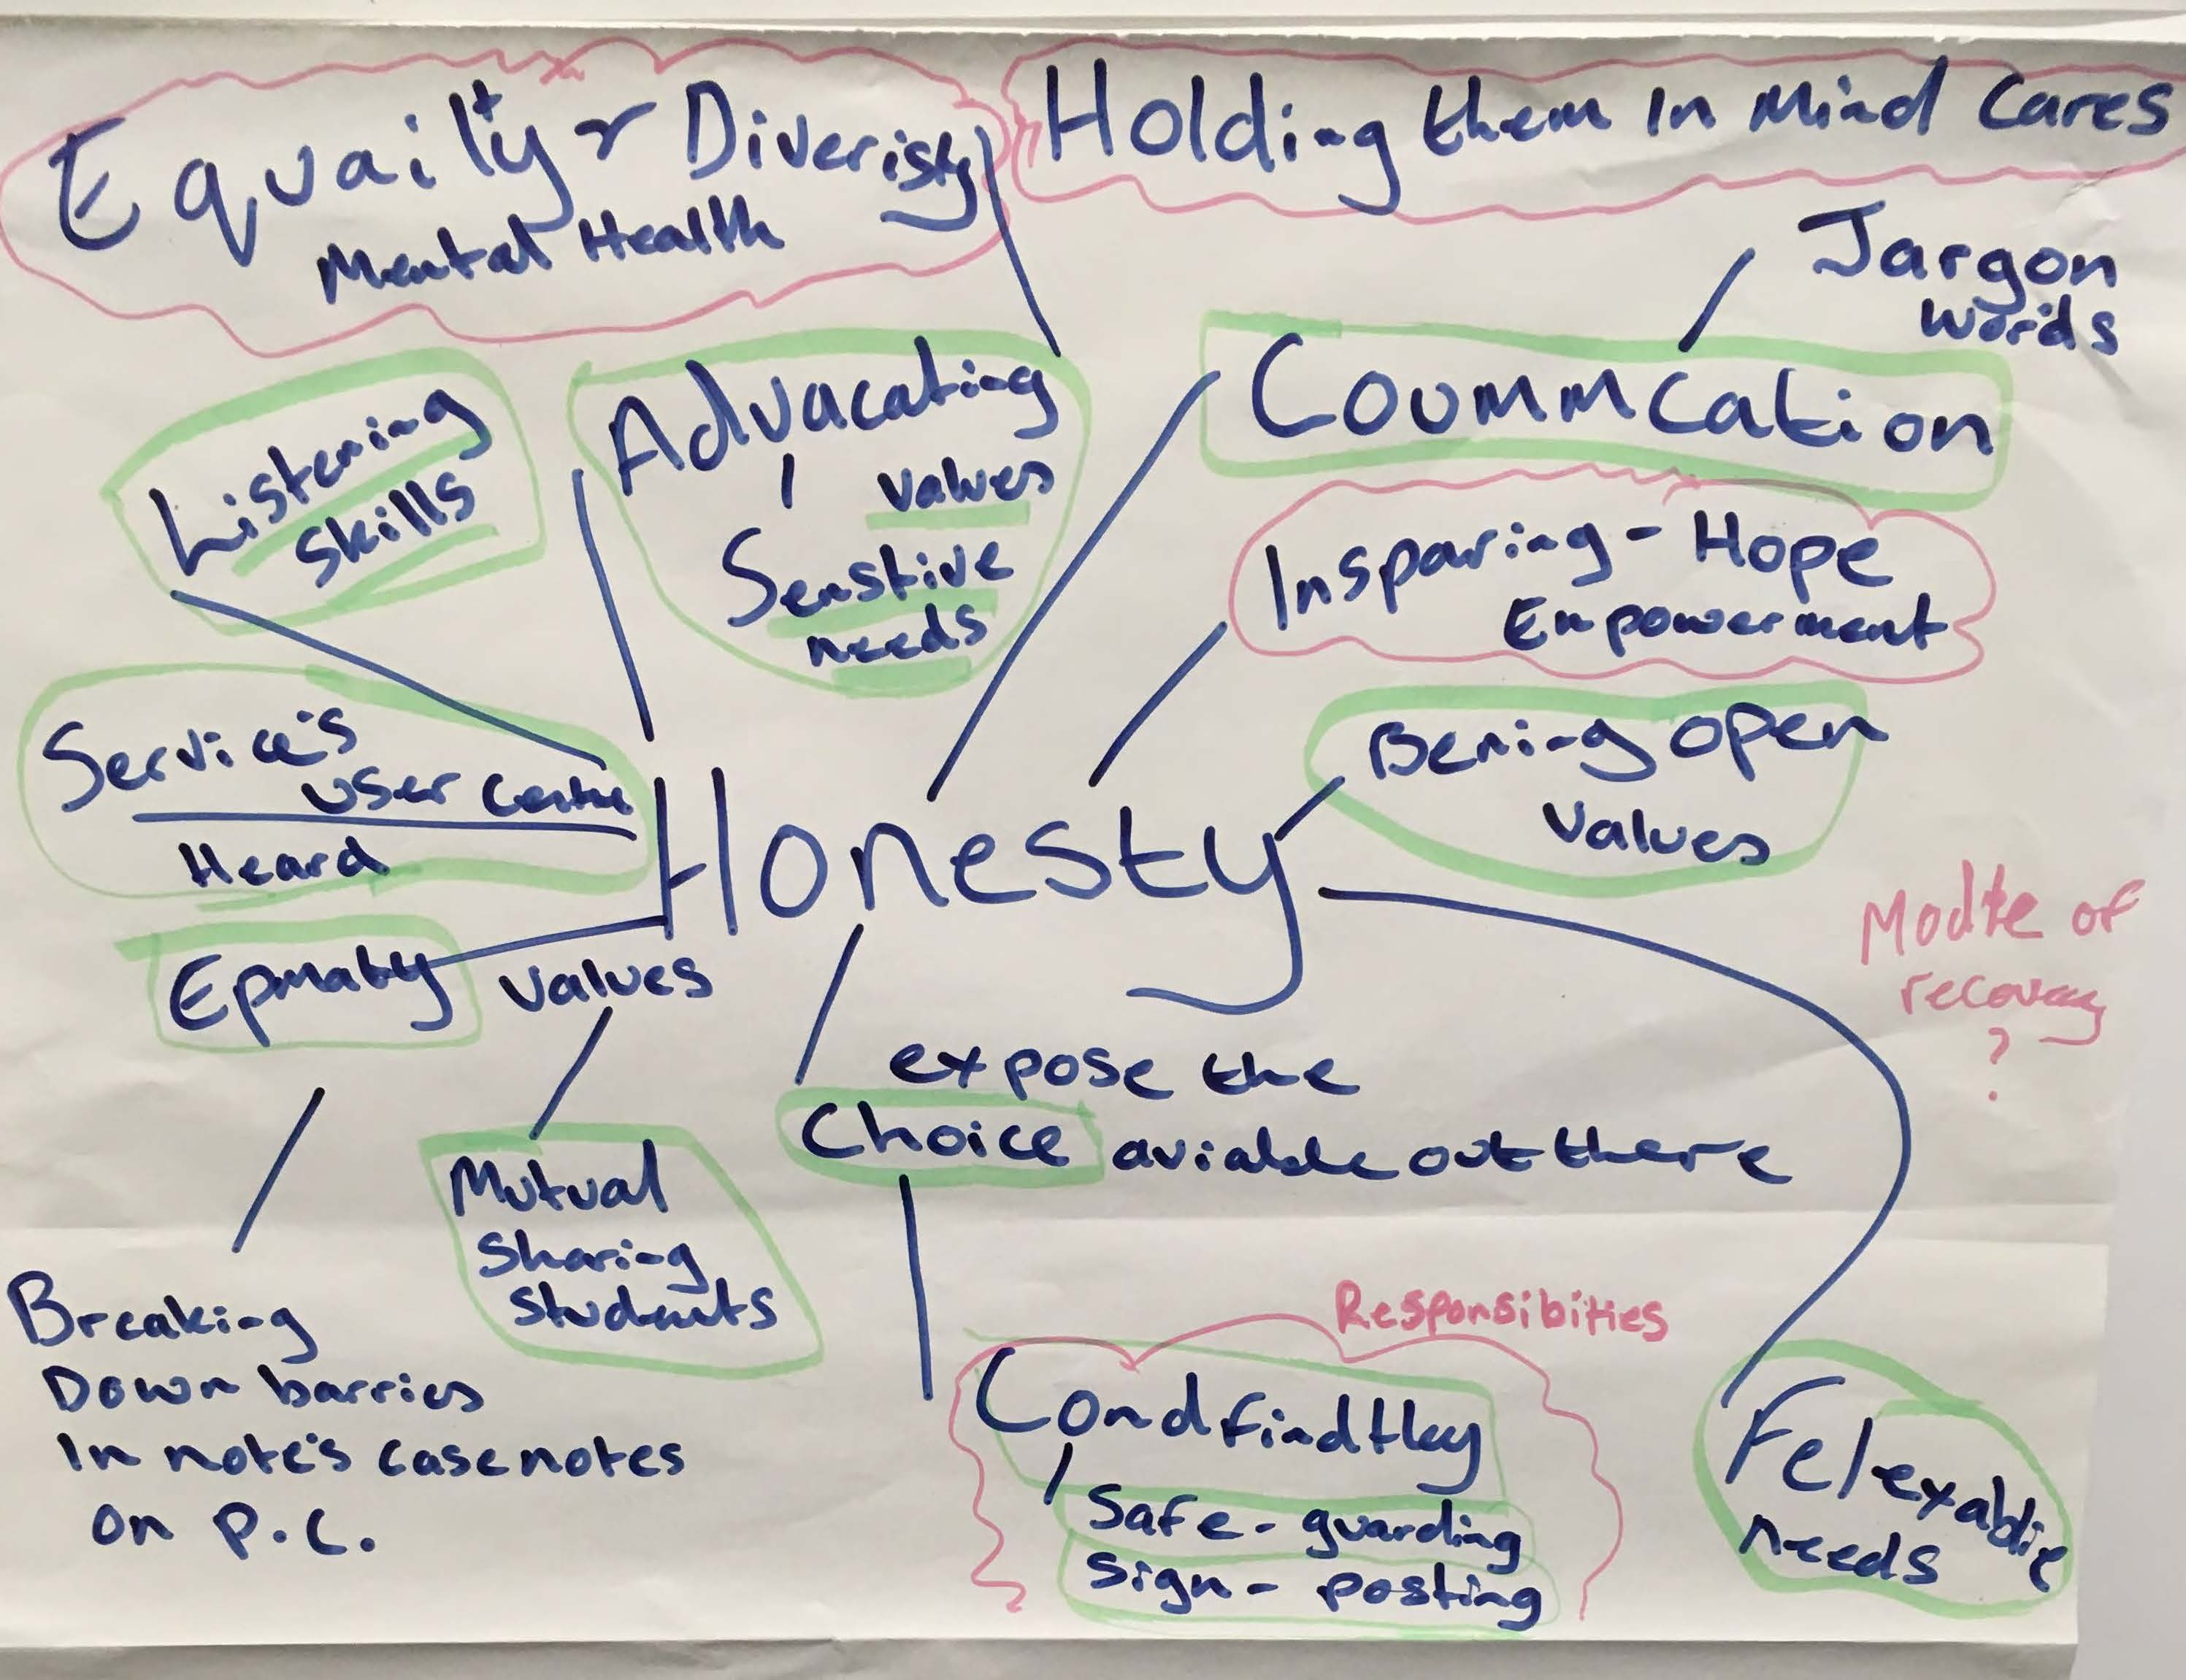 Equailty & Diveristy
Mental Health
Holding them In Mind Cares
Jargon
Words
Coummcation
Listening
Skills
Advacating
Values
Senstive
needs
Insparing - Hope
Empowerment
Service's
User Centre
Heard
Honesty
Bening open
Values
Modle of
recovery
?
Epmaty
Values
expose the
Choice aviable out there
Mutual
Sharing
Students
Breaking
Down barries
In note's casenotes
on P.C.
Responsibities
Condfindtley
Safe - guarding
Sign - posting
Felexablie
Needs